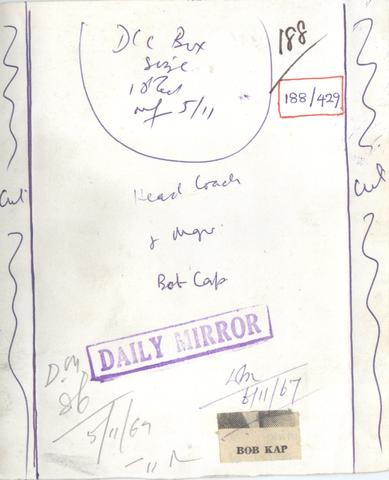 DCC Box
Size
5/11
188
188/429
Cut
Cut
Head Coach
& Mgr.
Bob Cap
DAILY MIRROR
D.M
86
5/11/67
6/11/67
BOB KAP